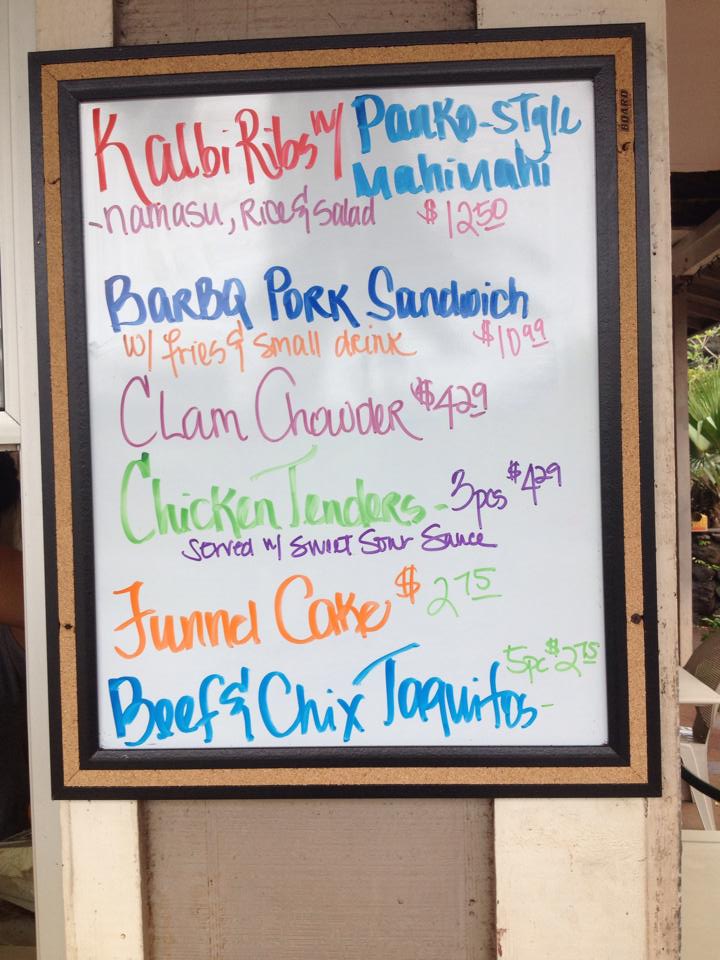 Kalbi Ribs w/ Panko-Style
Mahimahi
-namasu, Rice & Salad $12.50
BarBQ Pork Sandwich
w/ fries & small drink $10.99
Clam Chowder $4.29
Chicken Tenders - 3pcs $4.29
Served w/ Sweet Sour Sauce
Funnel Cake $2.75
Beef & Chix Taquitos - 5pc $2.75
BOARD